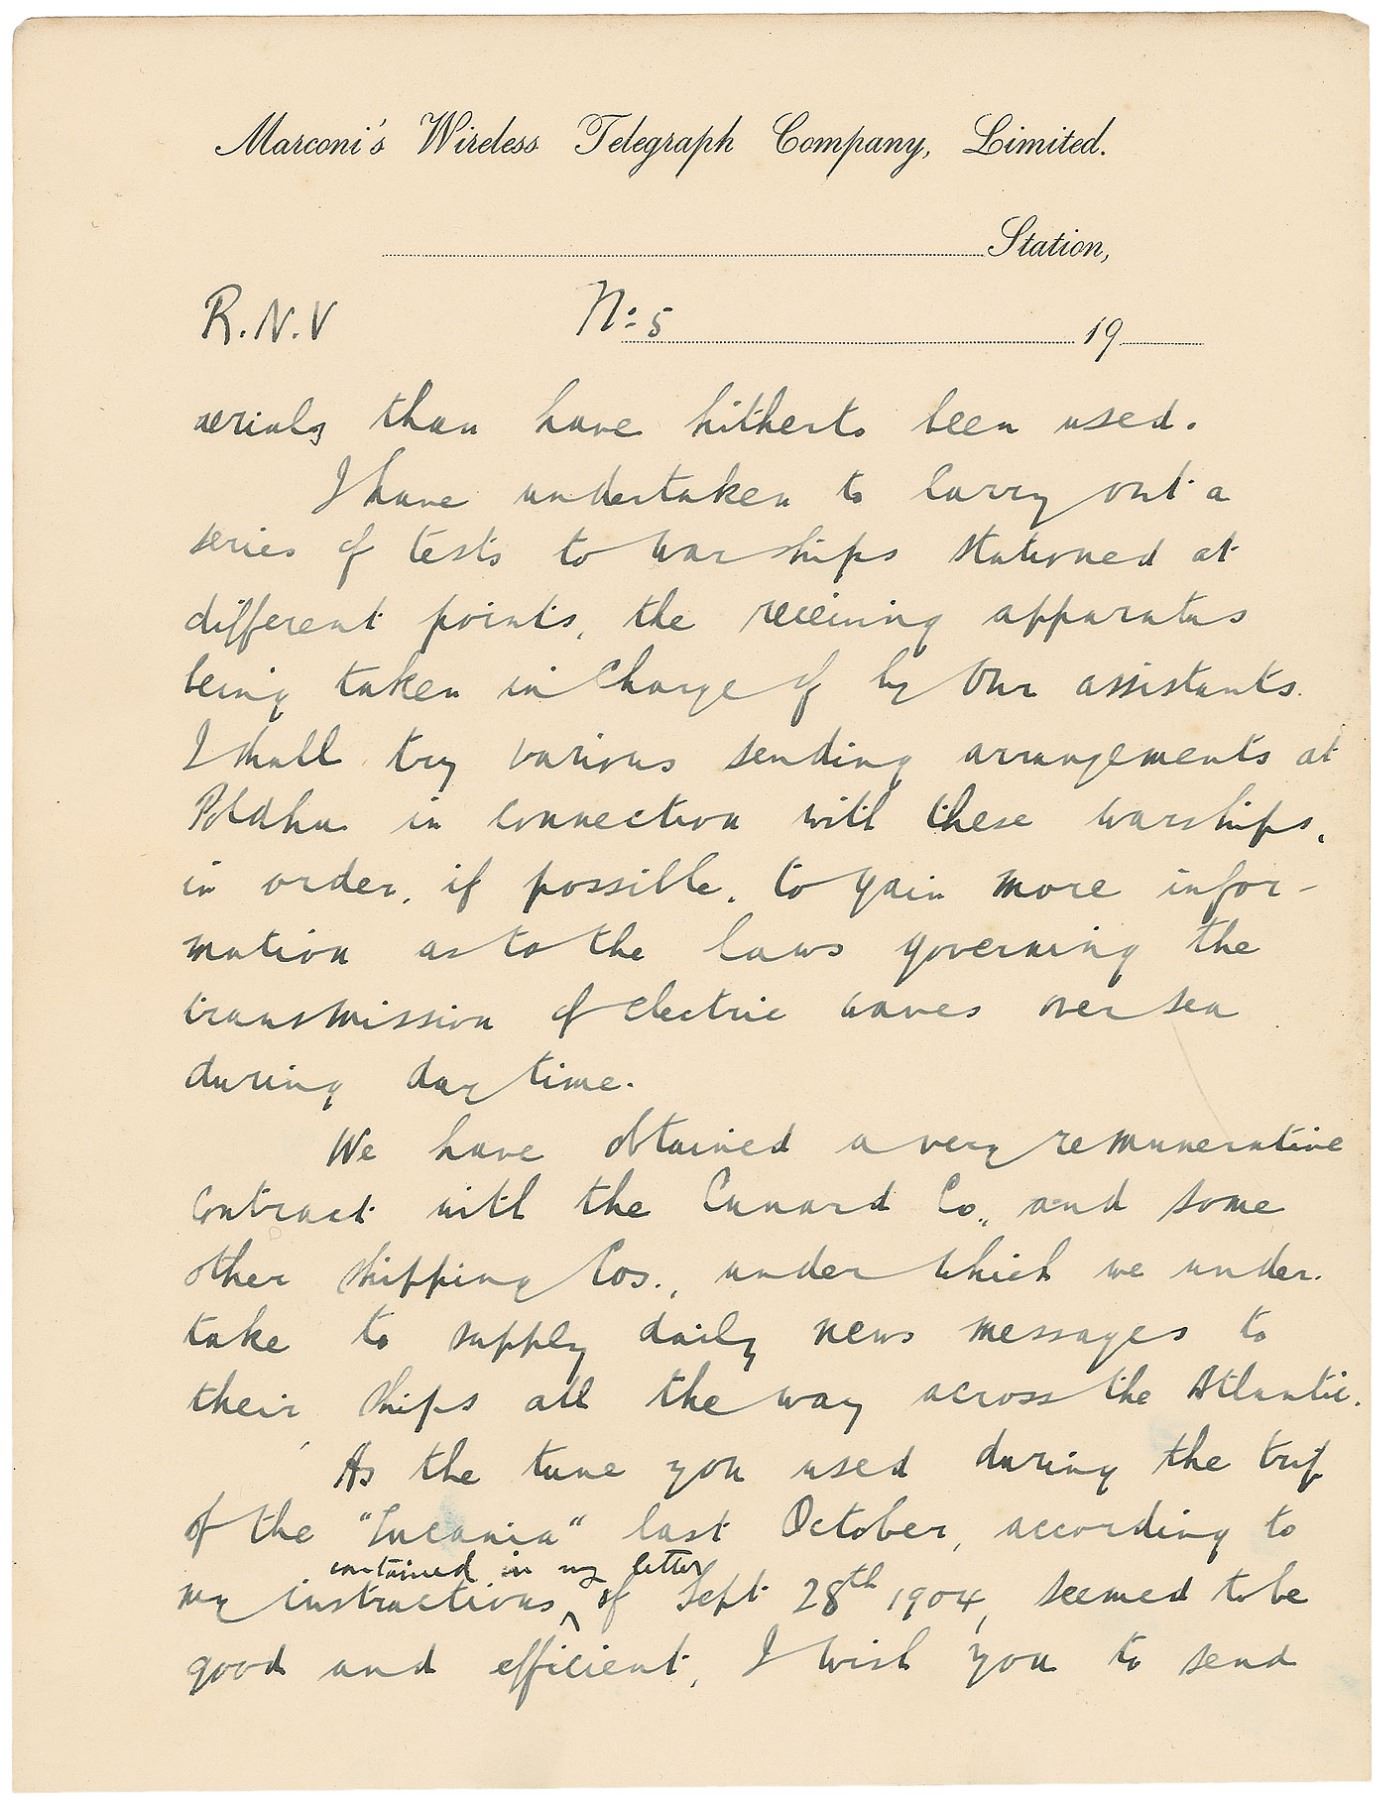 Marconi's Wireless Telegraph Company, Limited.
Station,
R.N.V No: 5 19
aerials than have hitherto been used.
I have undertaken to carry out a
series of tests to warships stationed at
different points, the receiving apparatus
being taken in charge of by our assistants.
I shall try various sending arrangements at
Poldhu in connection with these warships,
in order, if possible, to gain more infor-
mation as to the laws governing the
transmission of electric waves over sea
during day time.
We have obtained a very remunerative
contract with the Cunard Co., and some
other shipping Cos., under which we under-
take to supply daily news messages to
their ships all the way across the Atlantic.
As the tune you used during the trip
of the "Lucania" last October, according to
contained in my letter
my instructions ^ of Sept 28th 1904, seemed to be
good and efficient, I wish you to send